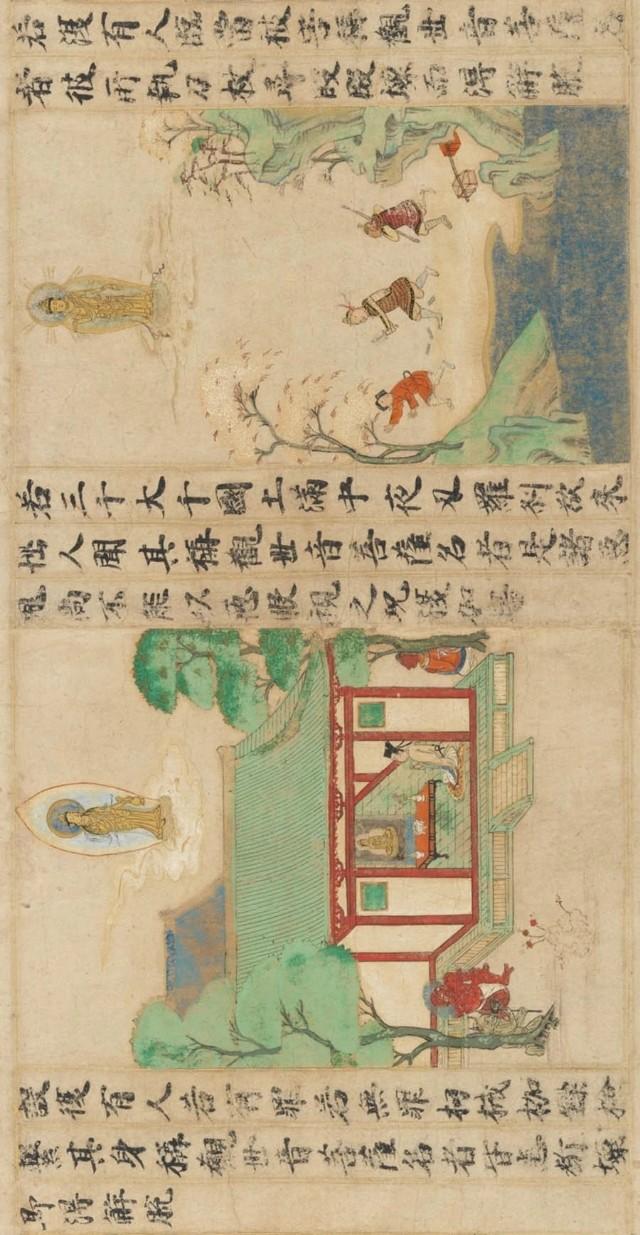 若復有人臨當被害稱觀世音菩薩名
者彼所執刀杖尋段段壞而得解脫
若三千大千國土滿中夜叉羅刹欲來
惱人聞其稱觀世音菩薩名者是諸惡
鬼尚不能以惡眼視之況復加害
設復有人若有罪若無罪杻械枷鎖撿
繫其身稱觀世音菩薩名者皆悉斷壞
即得解脫